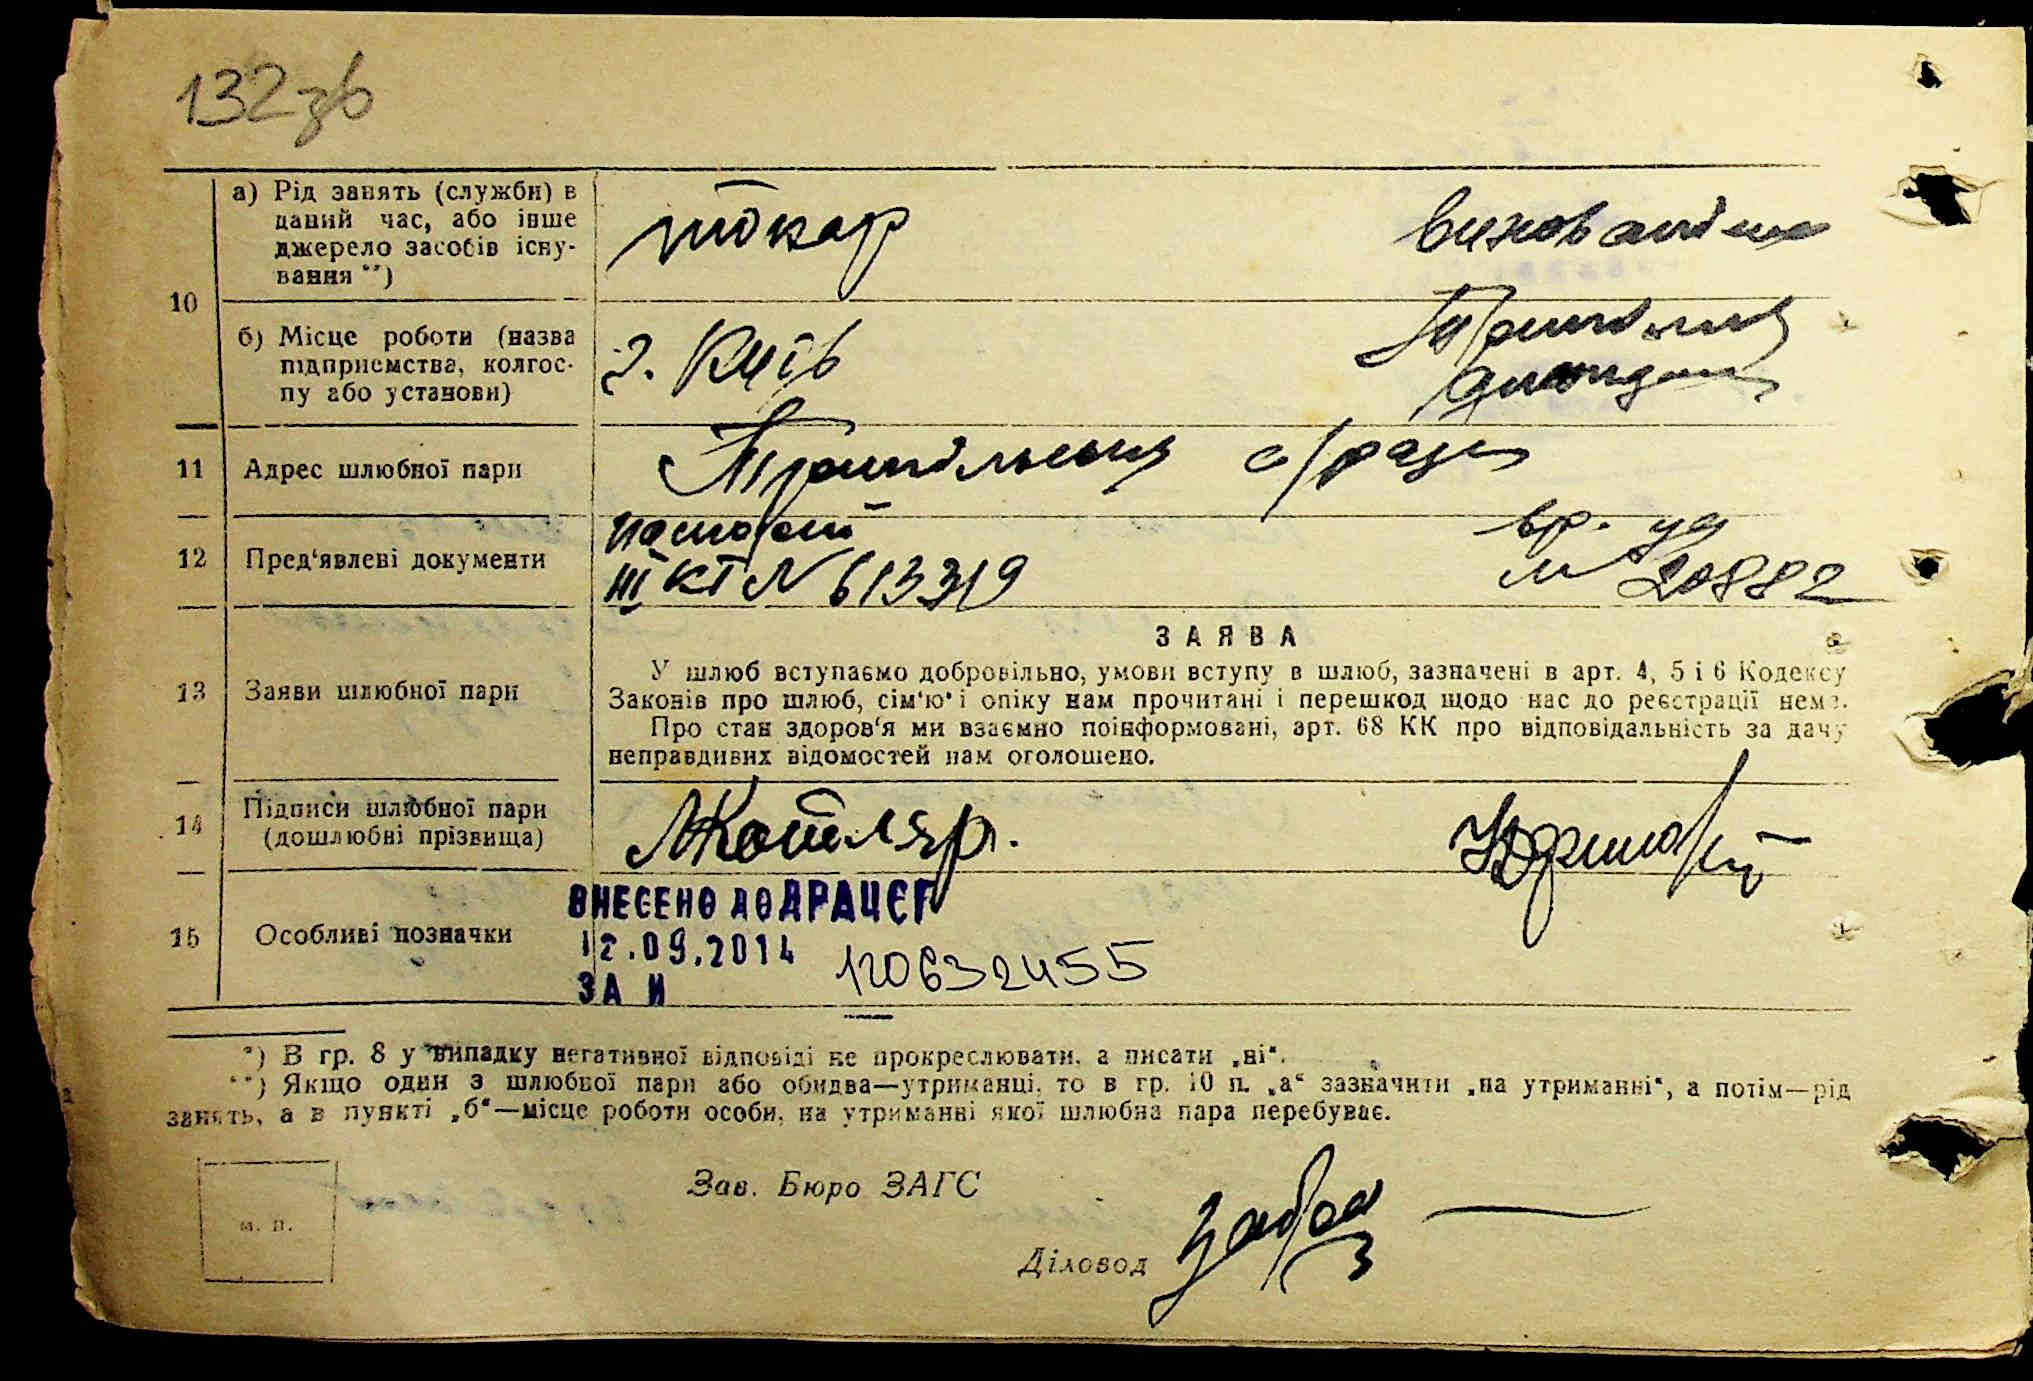 132зв
а) Рід занять (служби) в
даний час, або інше
джерело засобів існу-
вання **)
токар
10
б) Місце роботи (назва
підприємства, колгос-
пу або установи)
г. Київ
11 Адрес шлюбної пари
Трипільська с/рада
12 Пред'явлені документи
паспорт
III КТ N 613319
вр. уд
№ 20882
ЗАЯВА
13 Заяви шлюбної пари
У шлюб вступаємо добровільно, умови вступу в шлюб, зазначені в арт. 4, 5 і 6 Кодексу
Законів про шлюб, сім'ю і опіку нам прочитані і перешкод щодо нас до реєстрації нема.
Про стан здоров'я ми взаємно поінформовані, арт. 68 КК про відповідальність за дачу
неправдивих відомостей нам оголошено.
14 Підписи шлюбної пари
(дошлюбні прізвища)
Котляр.
15 Особливі позначки
ВНЕСЕНО ДО ДРАЦСГ
12.09.2014
ЗА И
120632455
*) В гр. 8 у випадку негативної відповіді не прокреслювати, а писати „ні“.
**) Якщо один з шлюбної пари або обидва—утриманці, то в гр. 10 п. „а“ зазначити „на утриманні“, а потім—рід
занять, а в пункті „б“—місце роботи особи, на утриманні якої шлюбна пара перебуває.
Зав. Бюро ЗАГС
м. п.
Діловод